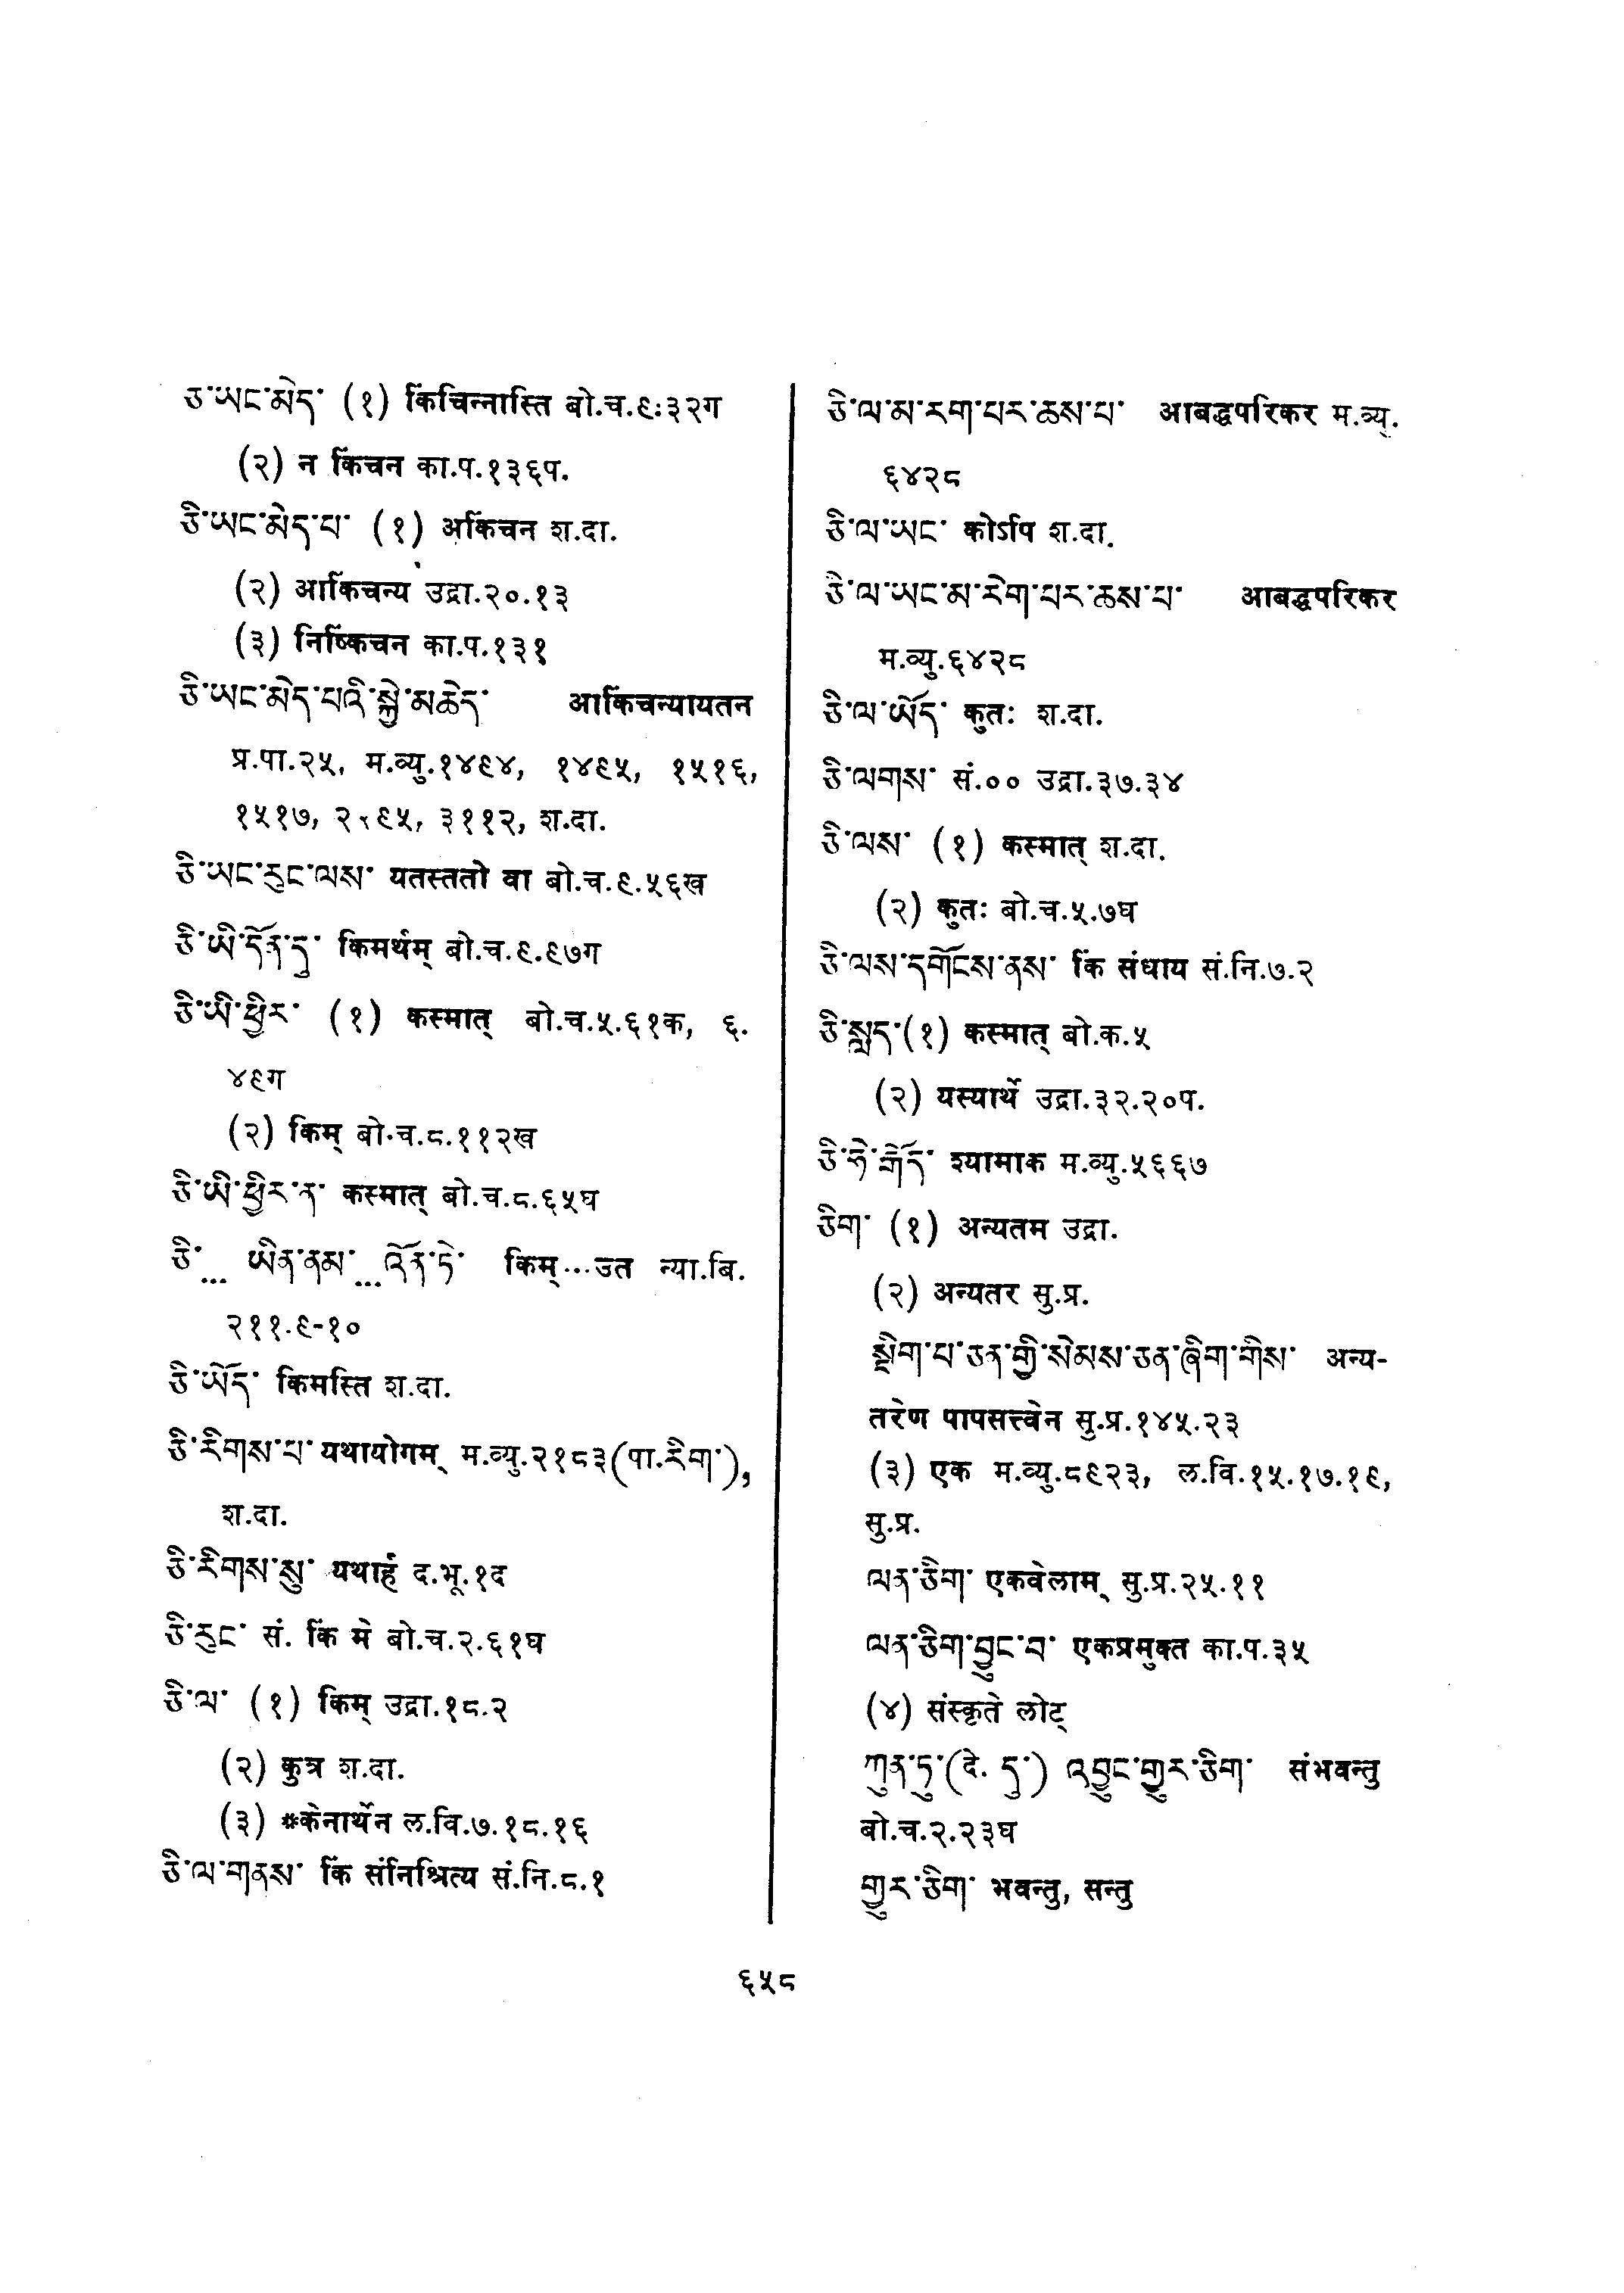 ཅི་ཡང་མེད་ (१) किंचिन्नास्ति बो.च.९:३२ग
(२) न किंचन का.प.१३६प.
ཅི་ཡང་མེད་པ་ (१) अकिंचन श.दा.
(२) आकिंचन्य उद्रा.२०.१३
(३) निष्किंचन का.प.१३१
ཅི་ཡང་མེད་པའི་སྐྱེ་མཆེད་ आकिंचन्यायतन
प्र.पा.२५, म.व्यु.१४९४, १४९५, १५१६,
१५१७, श.दा. ३११२,
ཅི་ཡང་རུང་ལས་ यतस्ततो वा बो.च.९.५६ख
ཅི་ཡི་དོན་དུ་ किमर्थम् बो.च.९.९७ग
ཅི་ཡི་ཕྱིར་ (१) कस्मात् बो.च.५.६१क, ६.
४९ग
(२) किम् बो.च.८.११२ख
ཅི་ཡི་ཕྱིར་ན་ कस्मात् बो.च.८.६५घ
ཅི་... ཡིན་ནམ་...འོན་ཏེ་ किम्...उत न्या.बि.
२११.९-१०
ཅི་ཡོད་ किमस्ति श.दा.
ཅི་རིགས་པ་ यथायोगम् म.व्यु.२१८३(पा.རིག་),
श.दा.
ཅི་རིགས་སུ་ यथार्ह द.भू.१द
ཅི་རུང་ सं. किं मे बो.च.२.६१घ
ཅི་ལ་ (१) किम् उद्रा.१८.२
(२) कुत्र श.दा.
(३) *केनार्थेन ल.वि.७.१८.१६
ཅི་ལ་གནས་ किं संनिश्रित्य सं.नि.८.१
ཅི་ལ་མ་རག་པར་ཆས་པ་ आबद्धपरिकर म.व्यु.
६४२८
ཅི་ལ་ཡང་ कोऽपि श.दा.
ཅི་ལ་ཡང་མ་རེག་པར་ཆས་པ་ आबद्धपरिकर
म.व्यु.६४२८
ཅི་ལ་ཡོད་ कुतः श.दा.
ཅི་ལགས་ सं.०० उद्रा.३७.३४
ཅི་ལས་ (१) कस्मात् श.दा.
(२) कुतः बो.च.५.७घ
ཅི་ལས་དགོངས་ནས་ किं संधाय सं.नि.७.२
ཅི་སླད་(१) कस्मात् बो.क.५
(२) यस्यार्थे उद्रा.३२.२०प.
ཅི་ཧེ་གོད་ श्यामाक म.व्यु.५६६७
ཅིག་ (१) अन्यतम उद्रा.
(२) अन्यतर सु.प्र.
སྡིག་པ་ཅན་གྱི་སེམས་ཅན་ཞིག་གིས་ अन्य-
तरेण पापसत्त्वेन सु.प्र.१४५.२३
(३) एक म.व्यु.८९२३, ल.वि.१५.१७.१९,
सु.प्र.
ལན་ཅིག་ एकवेलाम् सु.प्र.२५.११
ལན་ཅིག་བྱུང་བ་ एकप्रमुक्त का.प.३५
(४) संस्कृते लोट्
ཀུན་ཏུ་(दे. དུ་) འབྱུང་གྱུར་ཅིག་ संभवन्तु
बो.च.२.२३घ
གྱུར་ཅིག་ भवन्तु, सन्तु
६५८